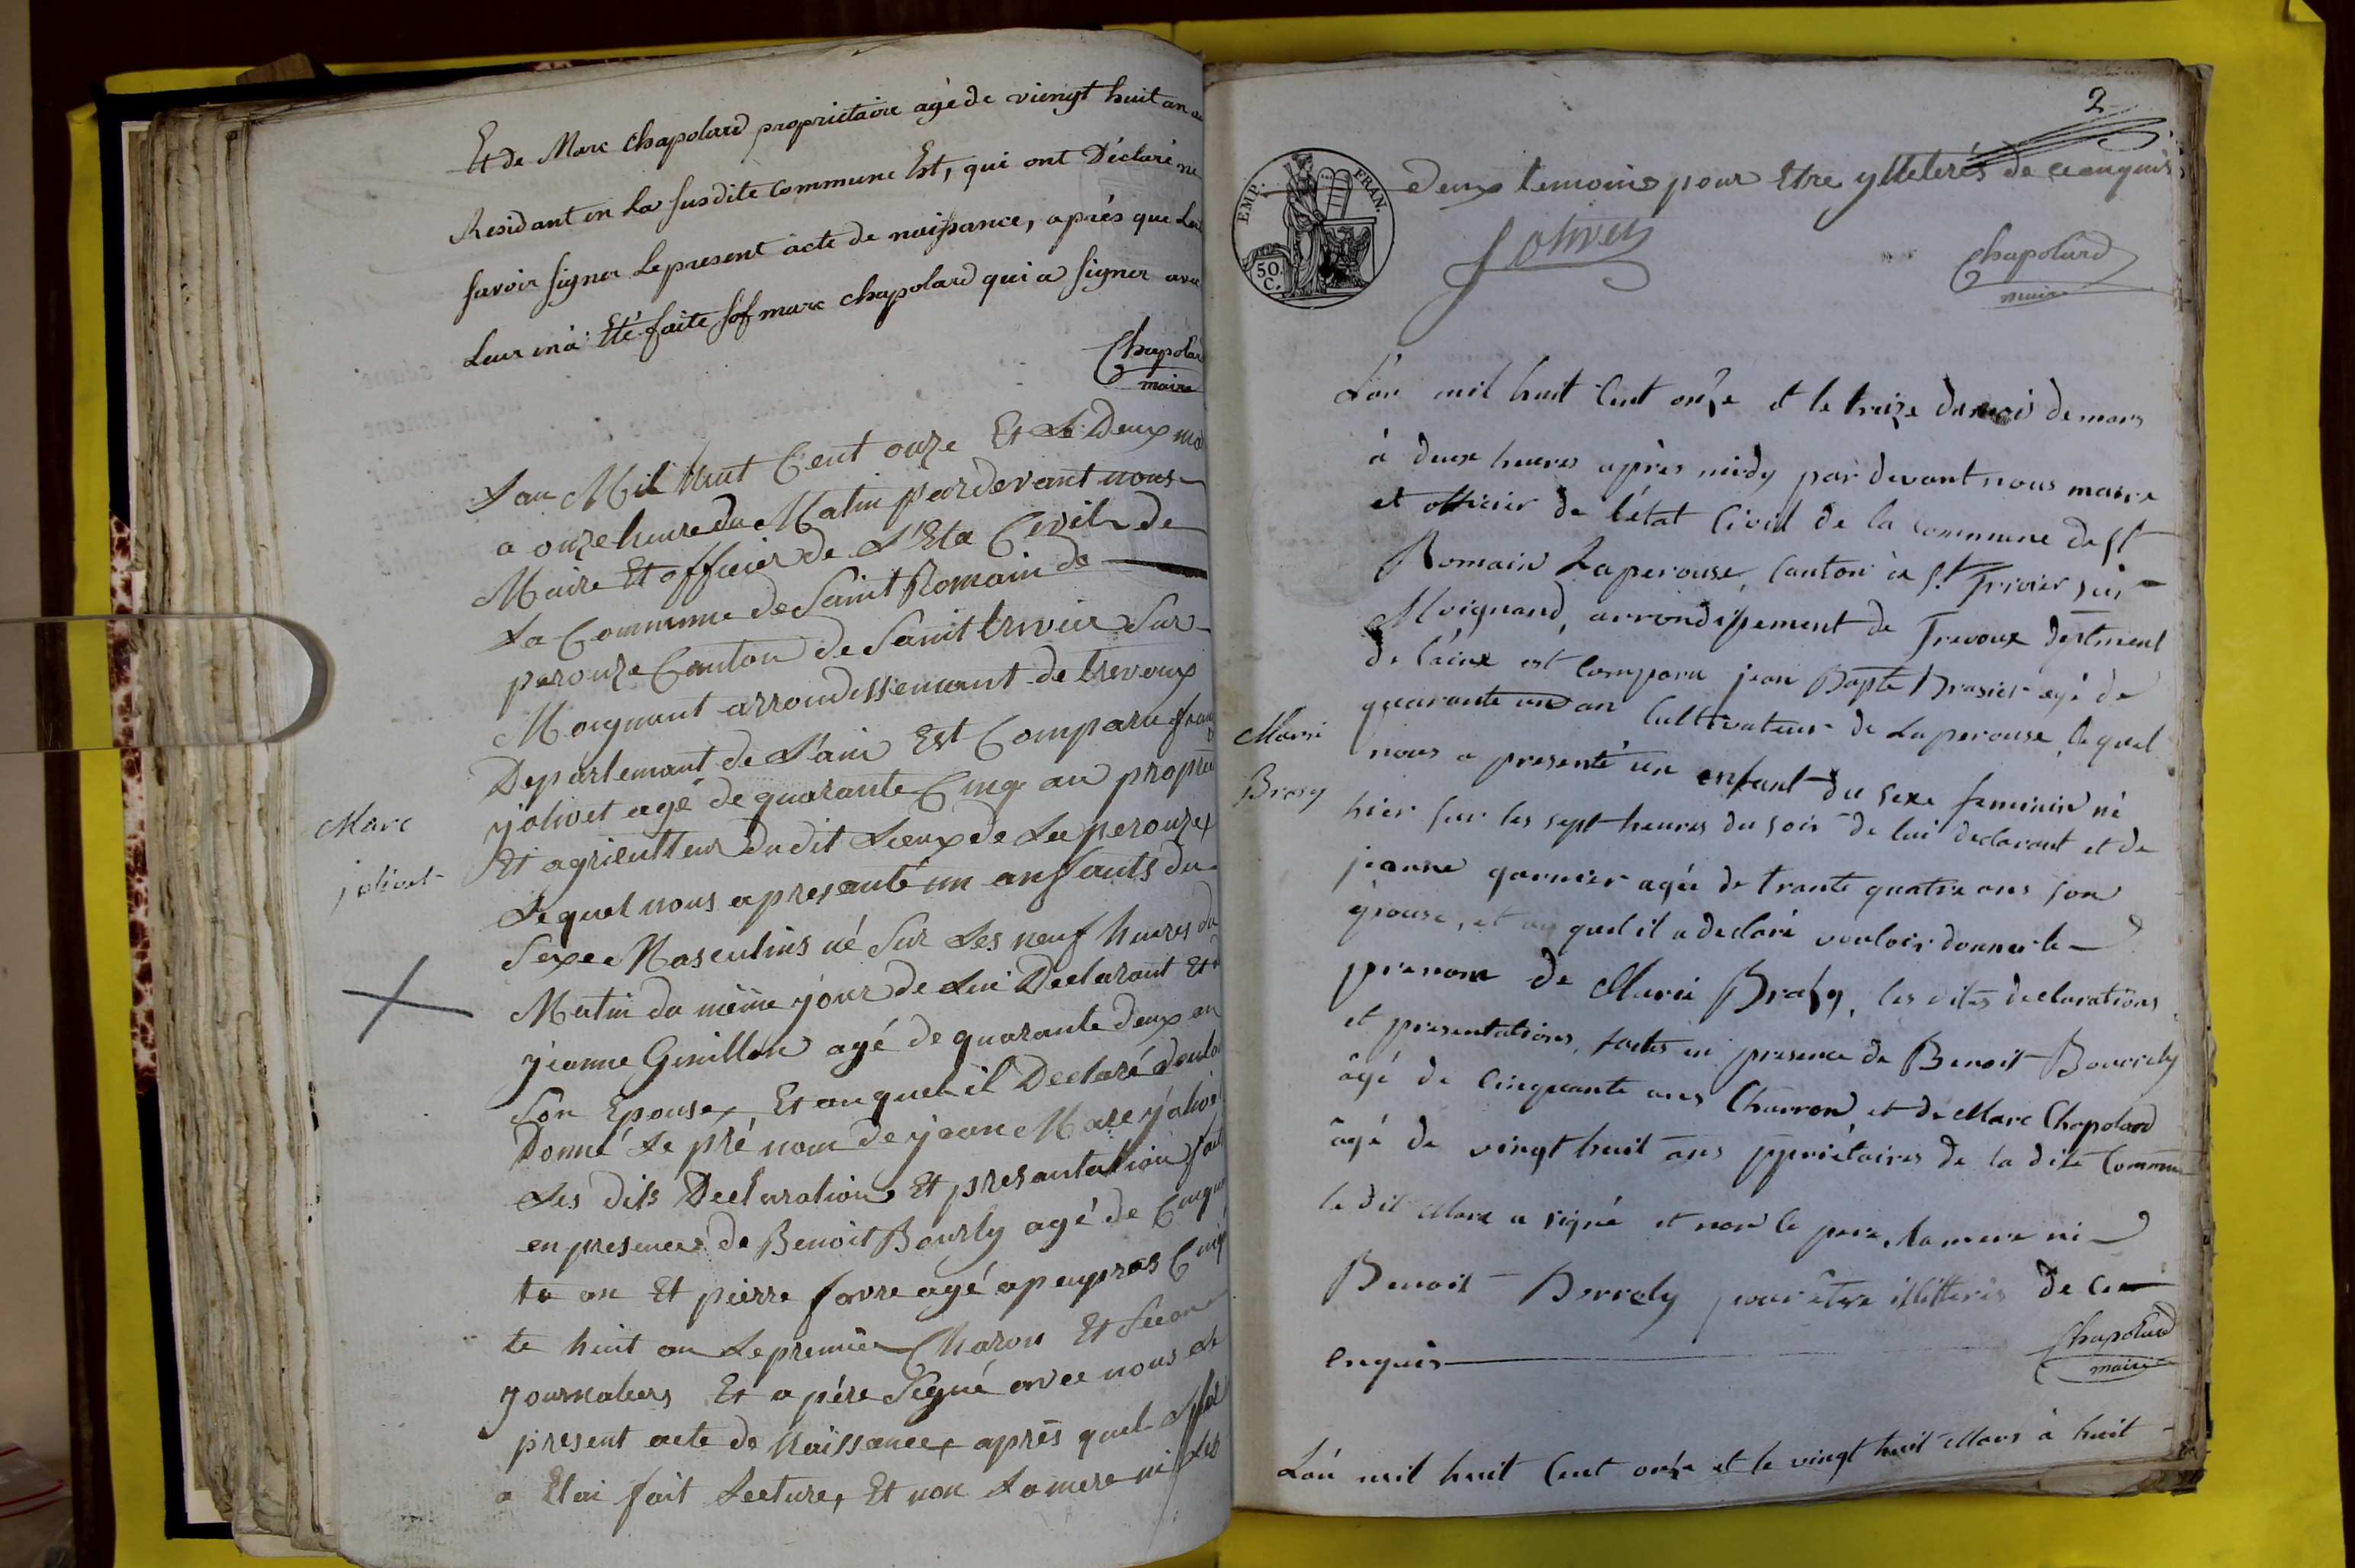 Et de Marc Chapolard proprietaire agé de viengt huit an
Residant en La susdite Commune Est, qui ont Déclaré ne
savoir signer Le present acte de naissance, après que Le
Leur en a Eté faite sof marc chapolard qui a signer ave
Chapolar
maire
Lan Mil huit Cent onze Et Le Deux ma
a onze heure du Matin pardevant nous
Maire Et officier de L'Eta Civil de
La Commune de Saint Romain de
perouze Canton de Saint trivier Sur
Moignant arrondissemant de trevoux
Departemant de L'ain Est Comparu fran
yolivet agé de quarante Cinq an proprie
Et agriculteur du dit Lieux de La perouze
Marc
jolivet
Lequel nous a presanté un anfants du
Sexe Masculins né Sur Les neuf heures du
Matin du même jour de Lui Declarant Et d
yeanne Guillon agé de quarante deux an
Son Epouse, Et au quel il Declaré voulo
Donné Le pré nom de yean Marc yolivet
Les dits Declaration Et presantation fait
en presence de Benoit Bourly agé de Cinquan
te an Et pierre favre agé apeupres Cinq
te huit an Le premier Charon Et Second
journaliers Et a père Signé avec nous Le
present acte de Naissance, après quel
a Etai fait Lecture, Et non La mere ni Les
2
EMP. FRAN.
50 C.
deux temoins pour Etre ylleterés de ce enquis
Jolivet
Chapolard
maire
L'an mil huit Cent onze et le treize du mois de mars
à deux heures après midy par devant nous maire
et officier de l'état Civil de la commune de St
Romain Laperouse, Canton de St. Trivier sur
Moignand, arrondissement de Trevoux deptment
de l'ain est Comparu jean Bapte Brasier agé de
quarante un an Cultivateur de Laperouse, lequel
Marie
Brasy
nous a presenté un enfant du sexe feminin né
hier sur les sept heures du soir de lui declarant et de
jeanne garnier agée de trante quatre ans son
épouse, et au quel il a declaré vouloir donner le
prenom de Marie Brasy, les dites declarations
et presentations, faites en presence de Benoit Bourrely
âgé de Cinquante ans Charron, et de Marc Chapolard
âgé de vingt huit ans ppriétaires de la dite Commune
le dit Marc a signé et non le pere, la mere ni
Benoit Borrely pour être illitteris de ce
enquis
Chapolard
maire
L'an mil huit Cent onze et le vingt huit Mars à huit